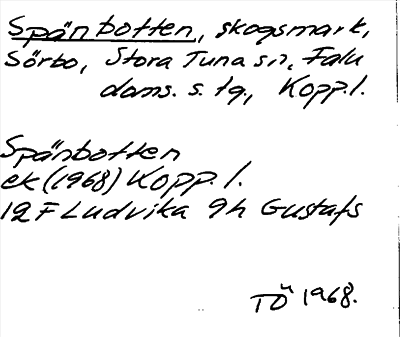 Spänbotten, skogsmark,
Sörbo, Stora Tuna sn, Falu
doms. s. tg., Kopp. l.
Spänbotten
ek (1968) Kopp. l.
12 F Ludvika 9h Gustafs
TÖ 1968.